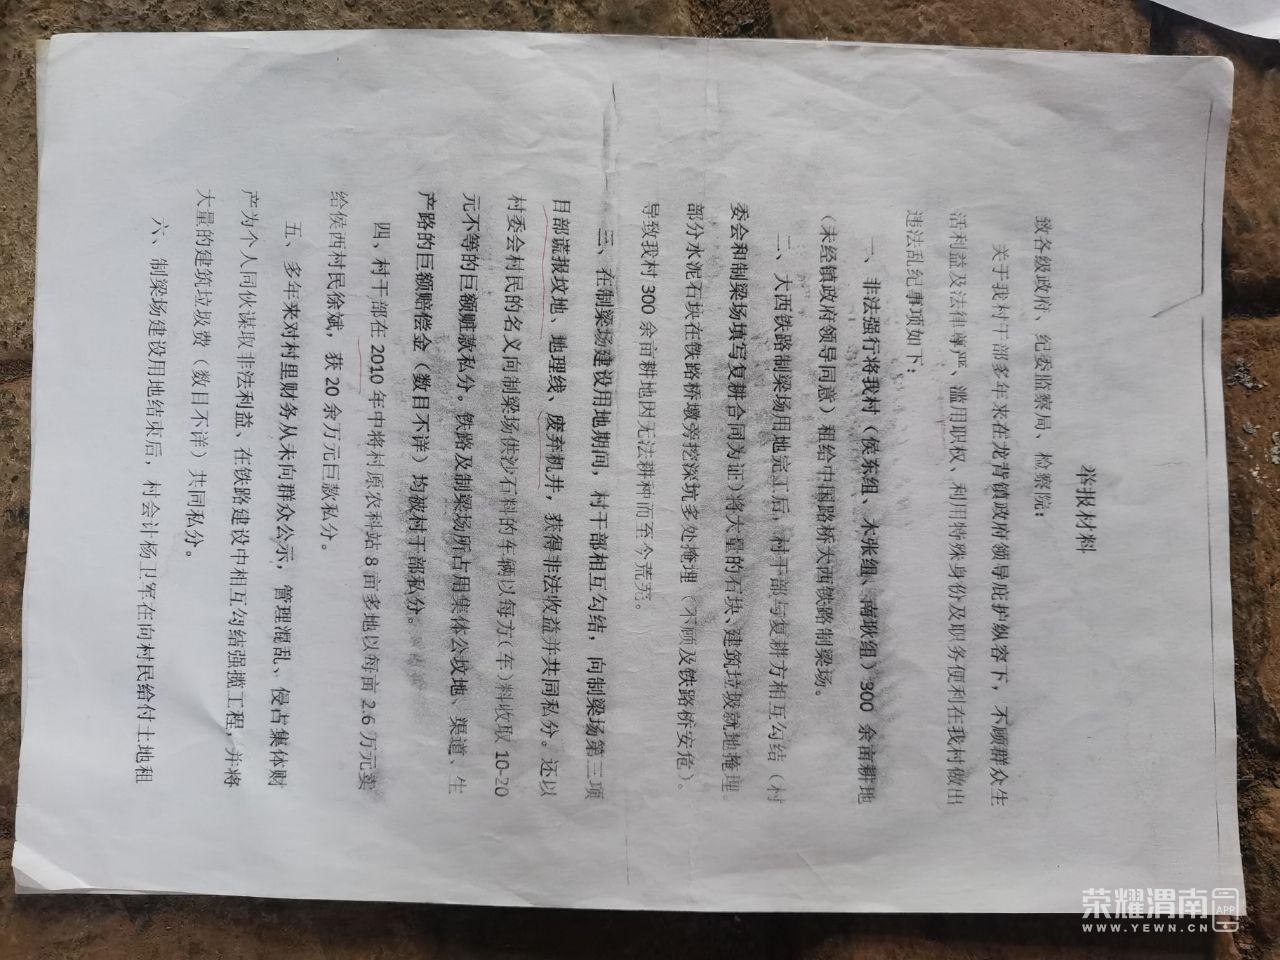 举报材料
致各级政府、纪委监察局、检察院：
关于我村干部多年来在龙背镇政府领导庇护纵容下，不顾群众生
活利益及法律尊严，滥用职权、利用特殊身份及职务便利在我村做出
违法乱纪事项如下：
一、非法强行将我村（侯东组、木张组、南耿组）300 余亩耕地
（未经镇政府领导同意）租给中国路桥大西铁路制梁场。
二、大西铁路制梁场用地完工后，村干部与复耕方相互勾结（村
委会和制梁场填写复耕合同为证）将大量的石块、建筑垃圾就地掩埋。
部分水泥石块在铁路桥墩旁挖深坑多处掩埋（不顾及铁路桥安危）。
导致我村 300 余亩耕地因无法耕种而至今荒芜。
三、在制梁场建设用地期间，村干部相互勾结，向制梁场第三项
目部谎报坟地、地理线、废弃机井，获得非法收益并共同私分。还以
村委会村民的名义向制梁场供沙石料的车辆以每方（车）料收取 10-20
元不等的巨额赃款私分。铁路及制梁场所占用集体公坟地、渠道、生
产路的巨额赔偿金（数目不详）均被村干部私分。
四、村干部在 2010 年中将村原农科站 8 亩多地以每亩 2.6 万元卖
给侯西村民徐斌，获 20 余万元巨款私分。
五、多年来对村里财务从未向群众公示，管理混乱、侵占集体财
产为个人同伙谋取非法利益、在铁路建设中相互勾结强揽工程，并将
大量的建筑垃圾费（数目不详）共同私分。
六、制梁场建设用地结束后，村会计杨卫军在向村民给付土地租
荣耀渭南 APP
WWW.YEWN.CN